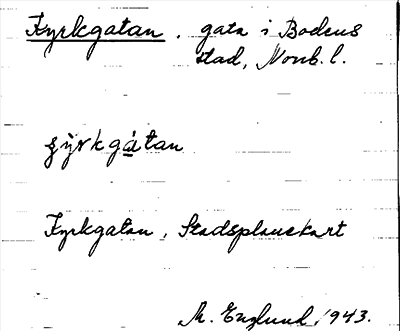 Kyrkgatan, gata i Bodens
stad, Norrb. l.
ɕỳrkgàtan
Kyrkgatan, Stadsplanekart
M. Englund, 1943.